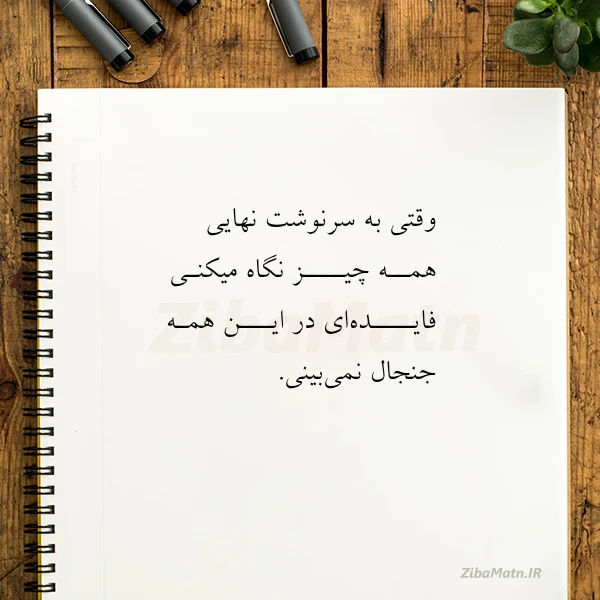 وقتی به سرنوشت نهایی
همه چیز نگاه میکنی
فایده‌ای در این همه
جنجال نمی‌بینی.
ZibaMatn
ZibaMatn.IR